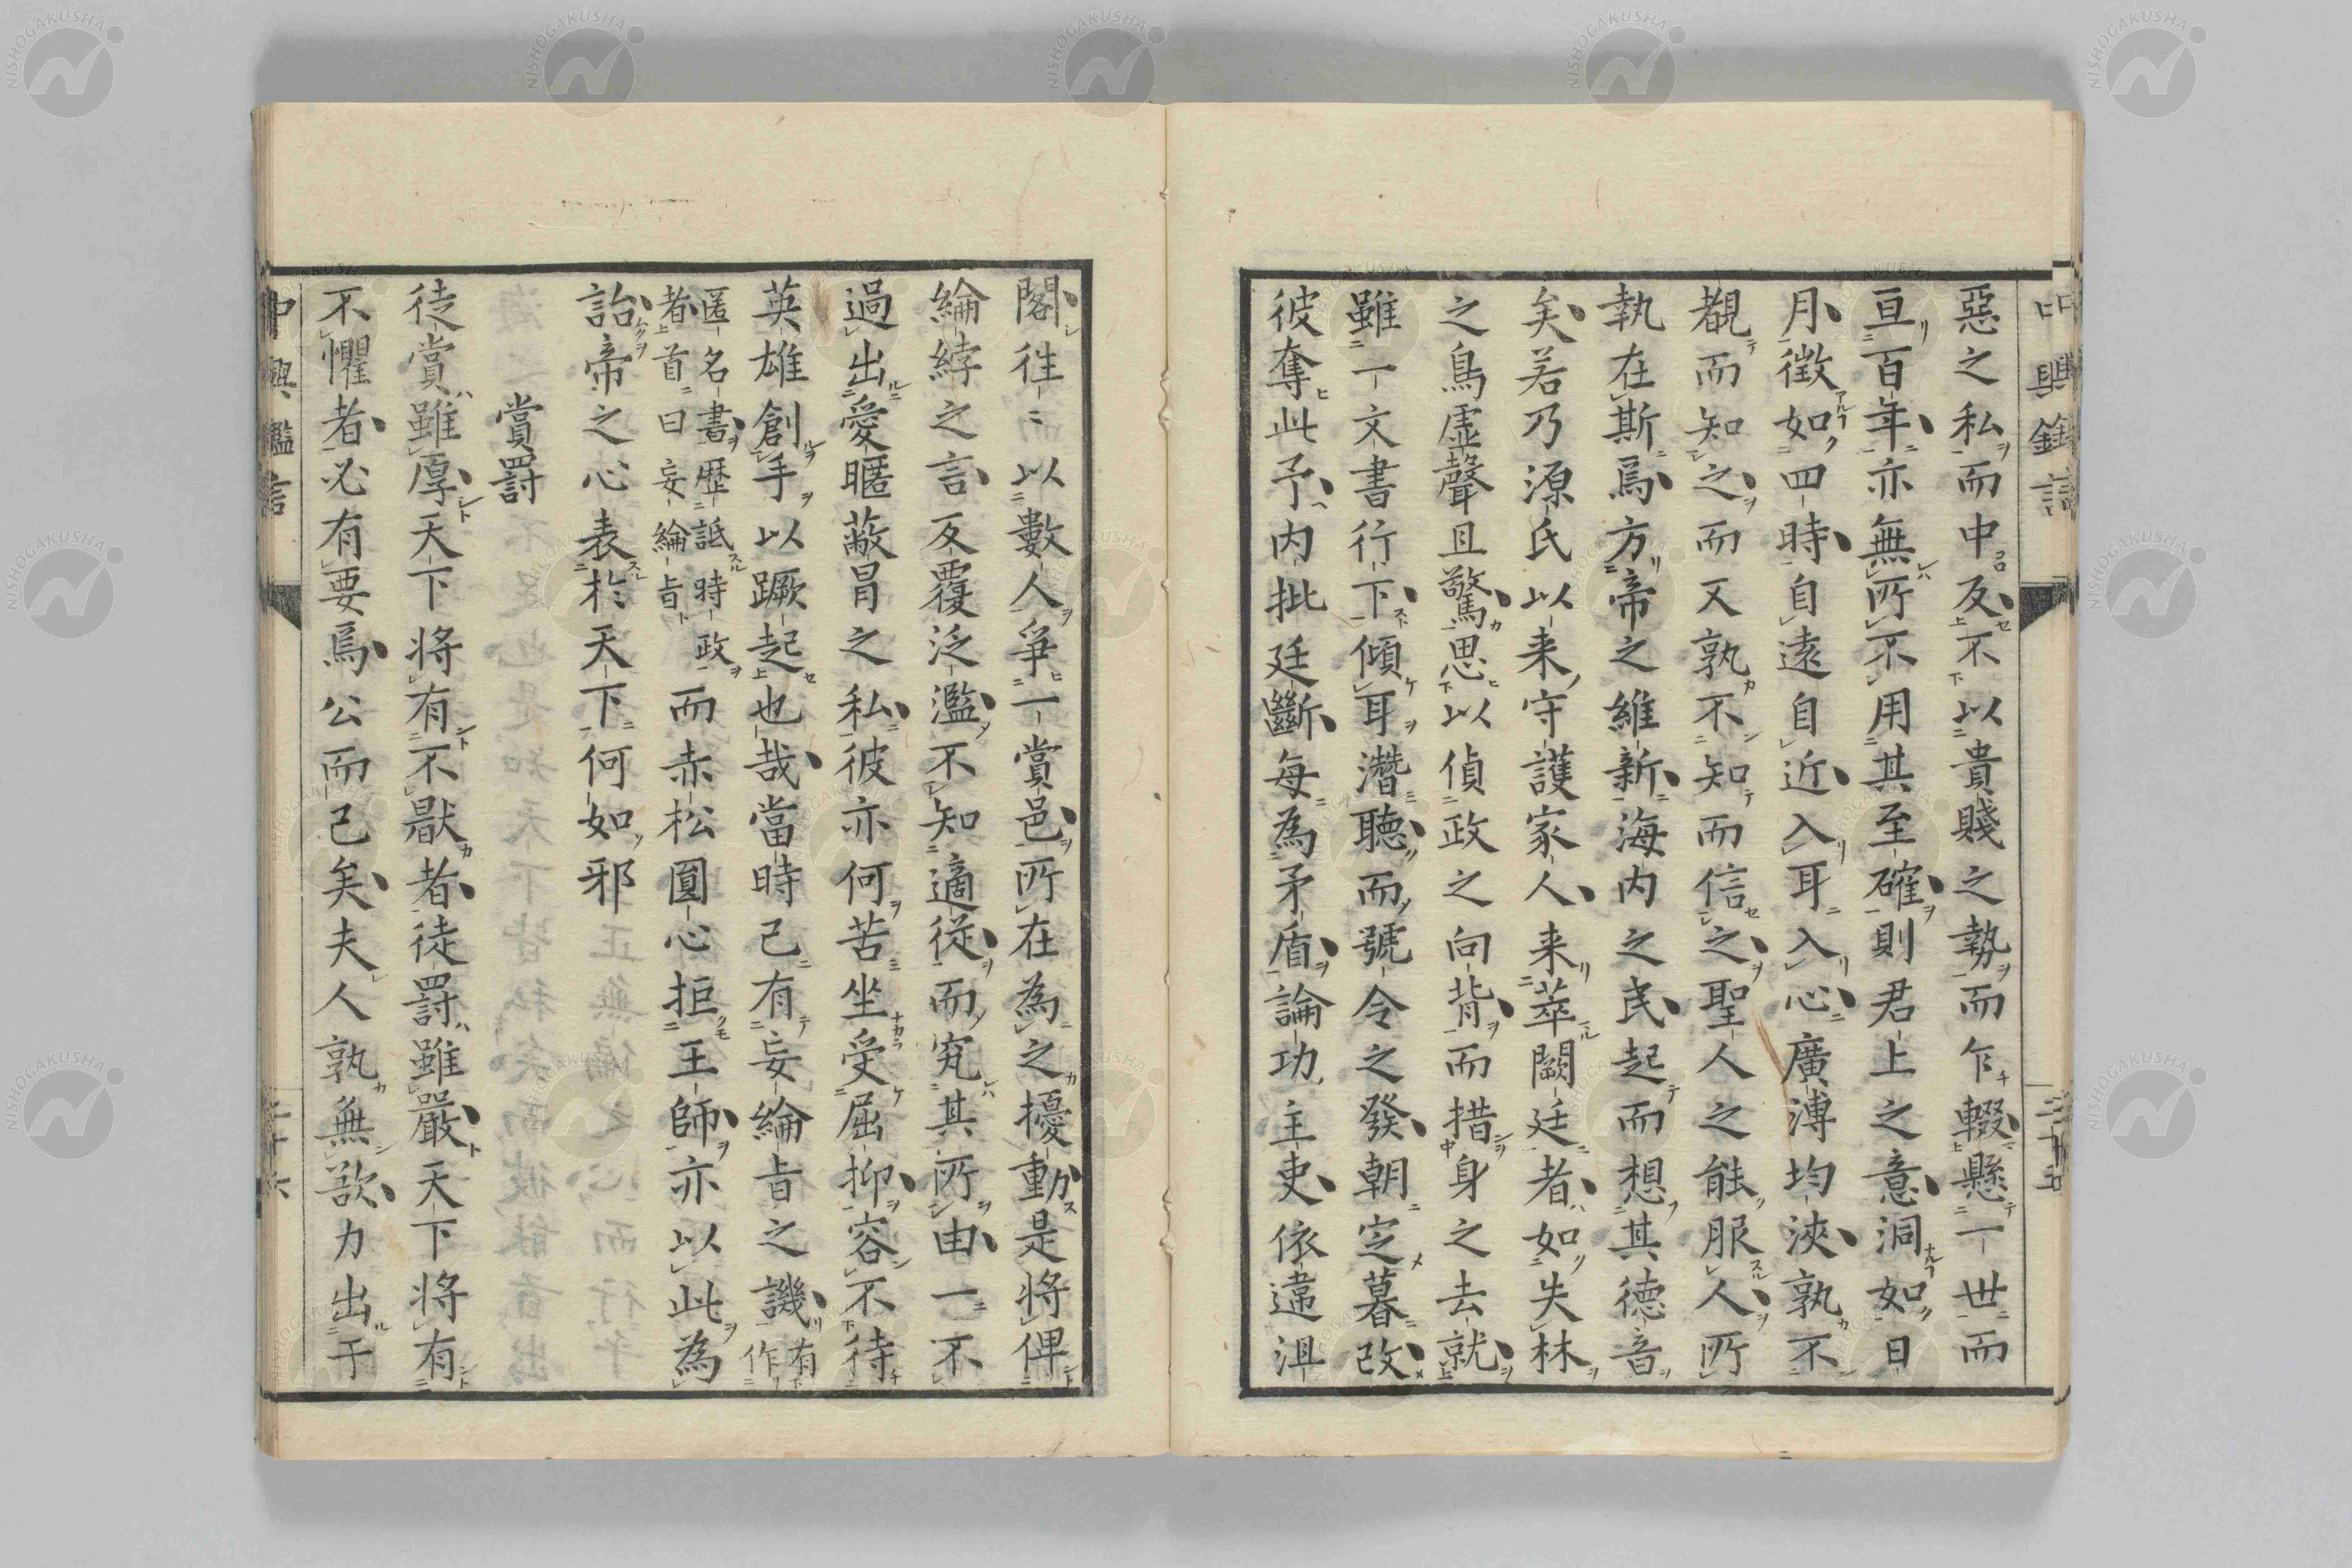 惡之私而中反不以貴賤之勢而乍輟懸一世而
亘百年亦無所不用其至確則君上之意洞如日
月徴如四時自遠自近入耳入心廣溥均浹孰不
覩而知之而又孰不知而信之聖人之能服人所
執在斯焉方帝之維新海内之民起而想其德音
矣若乃源氏以来守護家人来萃闕廷者如失林
之鳥虚聲且驚思以偵政之向背而措身之去就
雖一文書行下傾耳潛聽而號令之發朝定暮改
彼奪此予内批廷斷每為矛盾論功主吏依違沮
閣往〻以數人爭一賞邑所在為之擾動是将俾
綸綍之言反覆泛濫不知適從而究其所由一不
過出愛暱蔽冒之私彼亦何苦坐受屈抑容不待
英雄創手以蹶起也哉當時已有妄綸旨之譏有作
匿名書歴詆時政
者首曰妄綸旨
而赤松圓心拒王師亦以此為
詒帝之心表於天下何如邪
賞罰
徒賞雖厚天下将有不厭者徒罰雖嚴天下将有
不懼者必有要焉公而已矣夫人孰無欲力出于
中興鑑言